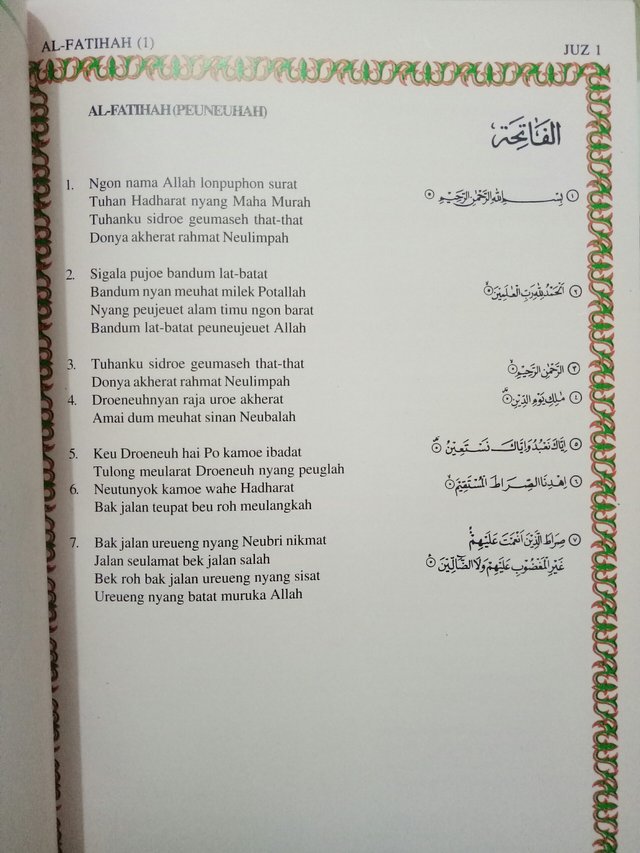 AL-FATIHAH (1)
JUZ 1
AL-FATIHAH (PEUNEUHAH)
الفَاتِحَة
1. Ngon nama Allah lonpuphon surat
Tuhan Hadharat nyang Maha Murah
Tuhanku sidroe geumaseh that-that
Donya akherat rahmat Neulimpah
١ بِسْمِ اللهِ الرَّحْمٰنِ الرَّحِيْمِ
2. Sigala pujoe bandum lat-batat
Bandum nyan meuhat milek Potallah
Nyang peujeuet alam timu ngon barat
Bandum lat-batat peuneujeuet Allah
٢ اَلْحَمْدُ لِلّٰهِ رَبِّ الْعٰلَمِيْنَ
3. Tuhanku sidroe geumaseh that-that
Donya akherat rahmat Neulimpah
٣ الرَّحْمٰنِ الرَّحِيْمِ
4. Droeneuhnyan raja uroe akherat
Amai dum meuhat sinan Neubalah
٤ مٰلِكِ يَوْمِ الدِّيْنِ
5. Keu Droeneuh hai Po kamoe ibadat
Tulong meularat Droeneuh nyang peuglah
٥ اِيَّاكَ نَعْبُدُ وَاِيَّاكَ نَسْتَعِيْنُ
6. Neutunyok kamoe wahe Hadharat
Bak jalan teupat beu roh meulangkah
٦ اِهْدِنَا الصِّرَاطَ الْمُسْتَقِيْمَ
7. Bak jalan ureueng nyang Neubri nikmat
Jalan seulamat bek jalan salah
Bek roh bak jalan ureueng nyang sisat
Ureueng nyang batat muruka Allah
٧ صِرَاطَ الَّذِيْنَ اَنْعَمْتَ عَلَيْهِمْ
غَيْرِ الْمَغْضُوْبِ عَلَيْهِمْ وَلَا الضَّآلِّيْنَ